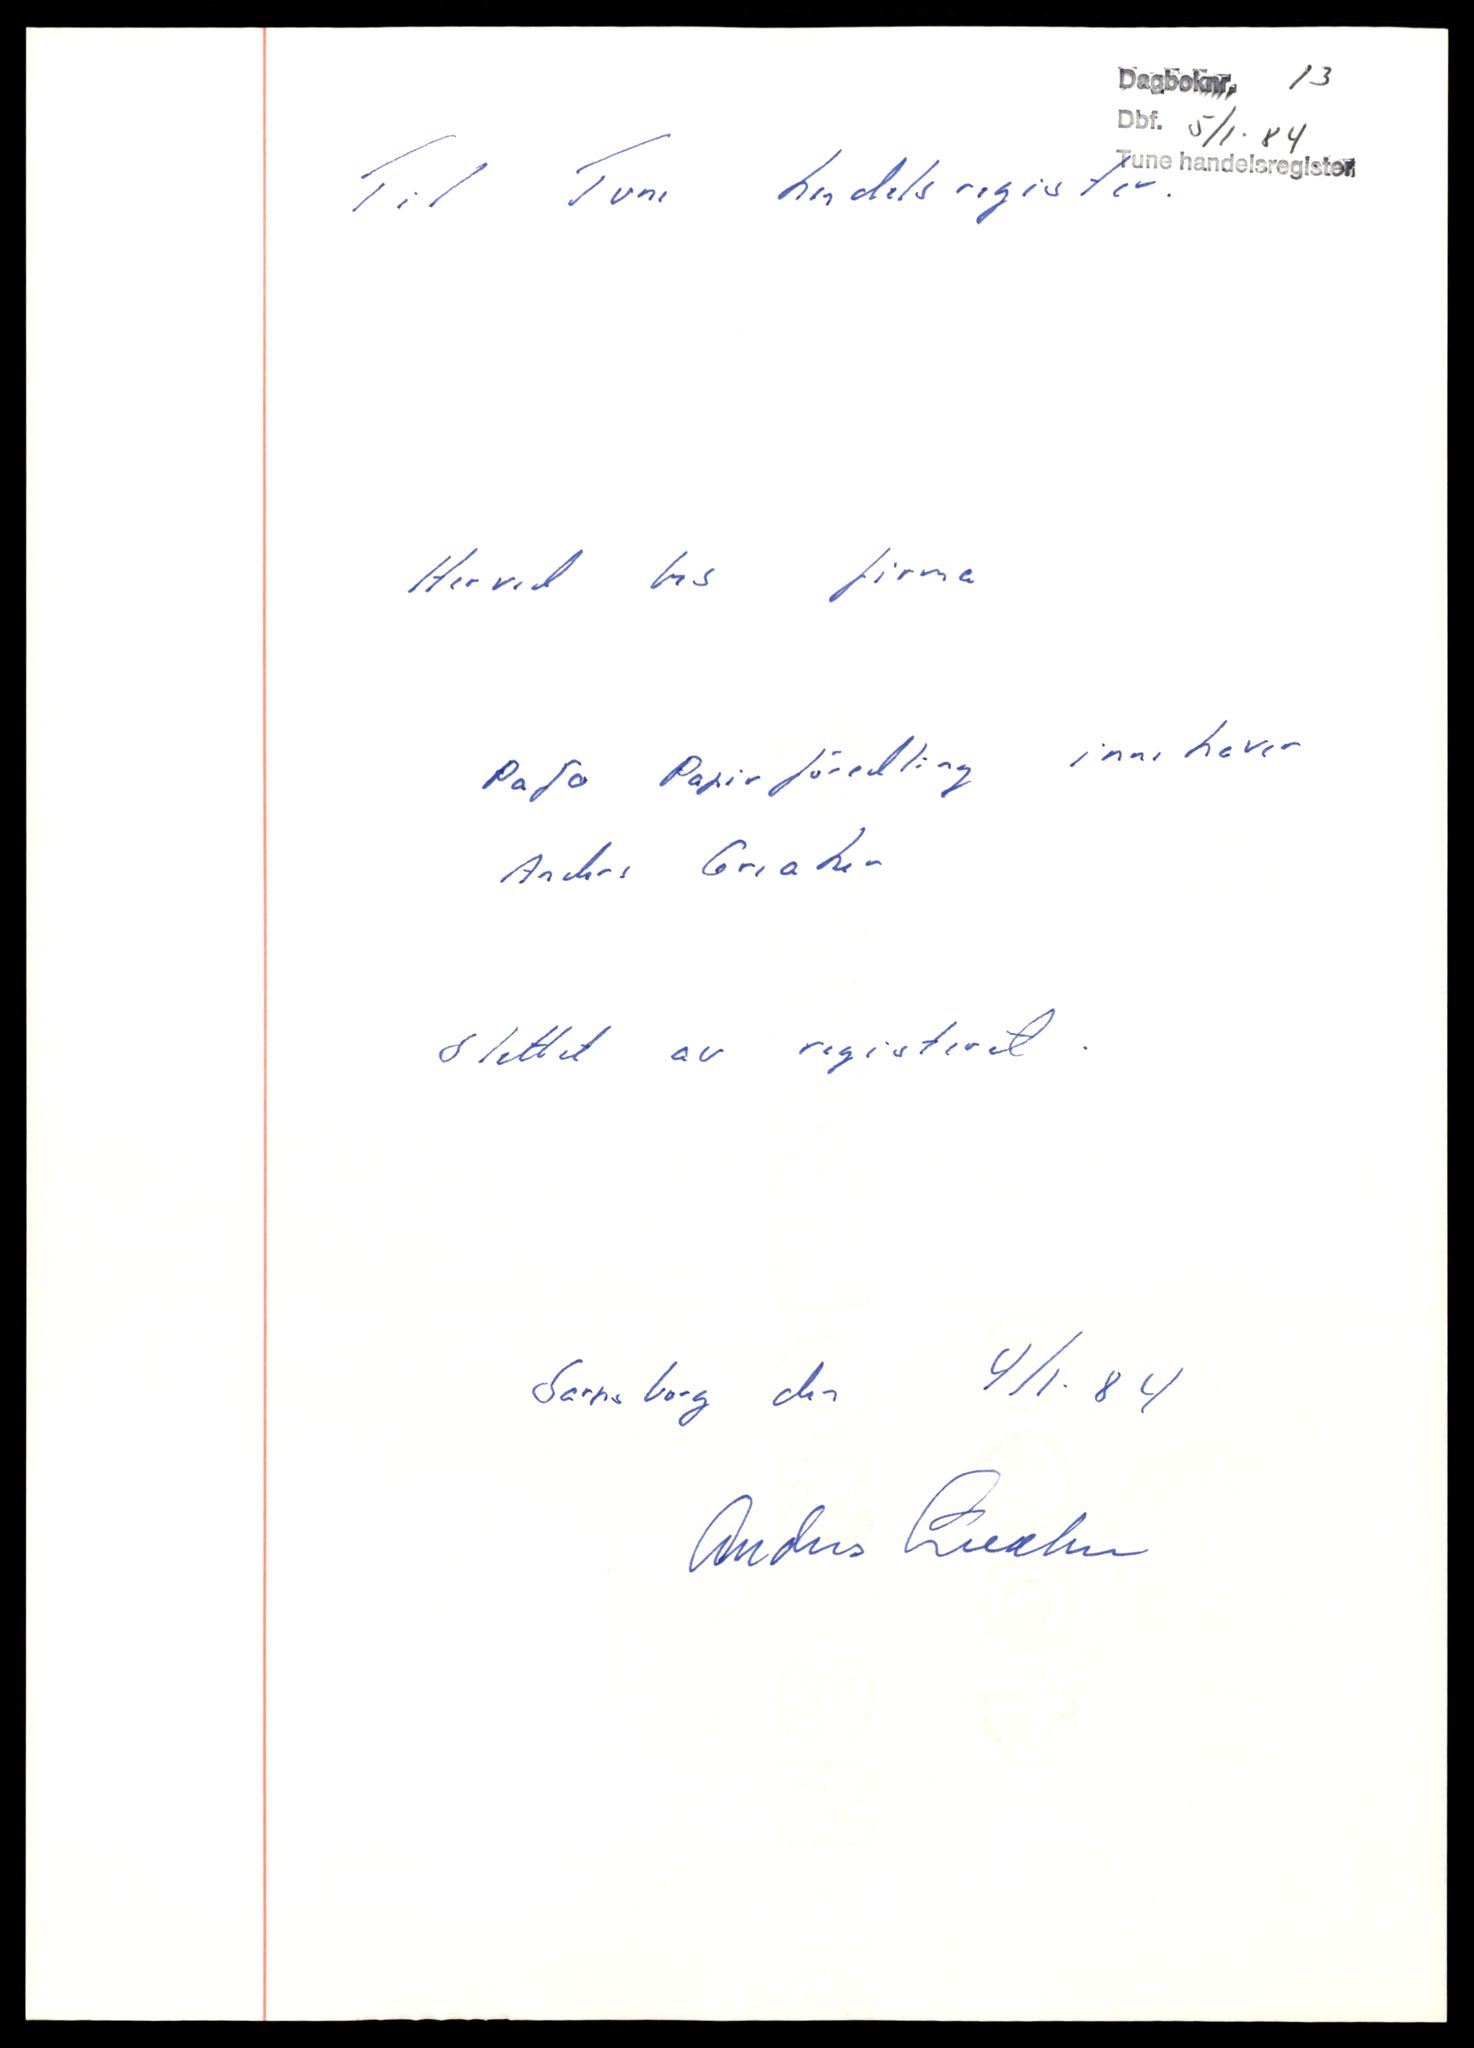 Dagboknr. 13
Dbf. 5/1. 84
Tune handelsregister
Til Tune handelsregister.
Herved bes firma
Pafo Papirforedling innehaver
Anders Greaker
slettet av registeret.
Sarpsborg den 4/1. 84
Anders Greaker